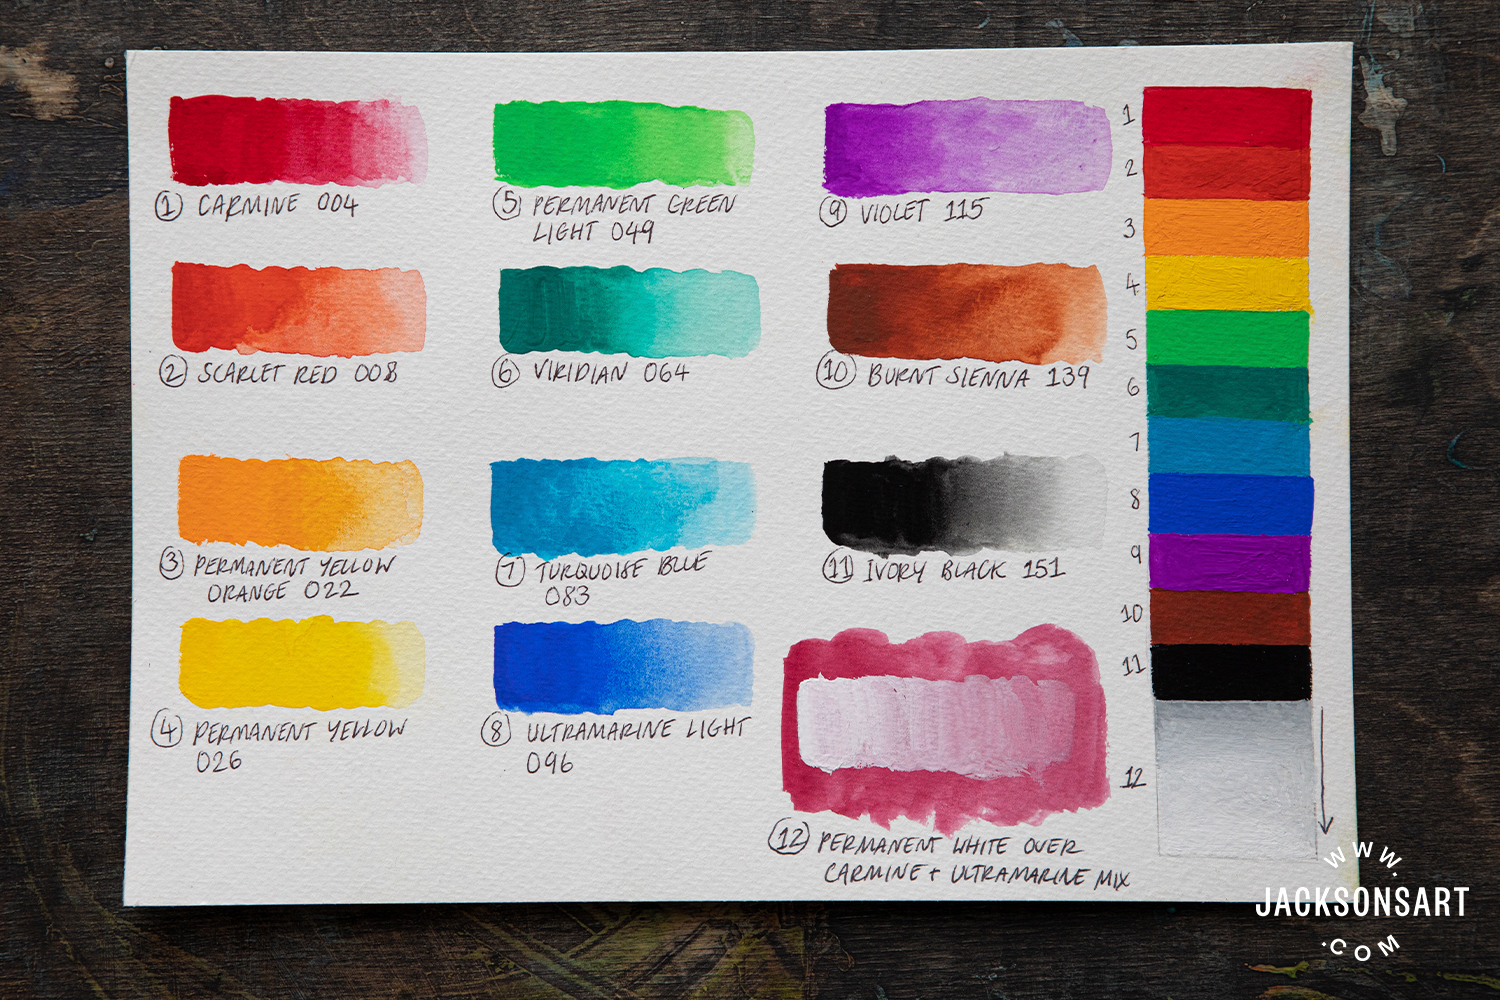 ① CARMINE 004
② SCARLET RED 008
③ PERMANENT YELLOW
ORANGE 022
④ PERMANENT YELLOW
026
⑤ PERMANENT GREEN
LIGHT 049
⑥ VIRIDIAN 064
⑦ TURQUOISE BLUE
083
⑧ ULTRAMARINE LIGHT
096
⑨ VIOLET 115
⑩ BURNT SIENNA 139
⑪ IVORY BLACK 151
⑫ PERMANENT WHITE OVER
CARMINE + ULTRAMARINE MIX
1
2
3
4
5
6
7
8
9
10
11
12
WWW.
JACKSONSART
.COM